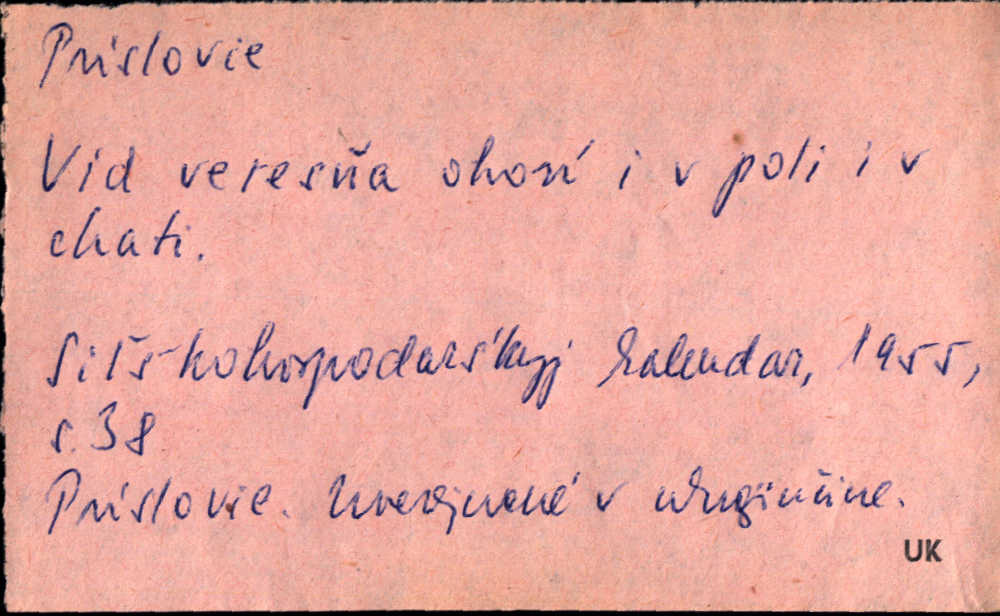 Príslovie
Vid veresňa ohoń i v poli i v
chati.
Siľśkohospodarśkyj kalendar, 1955,
s. 38
Príslovie. Uverejnené v ukrajinčine.
UK